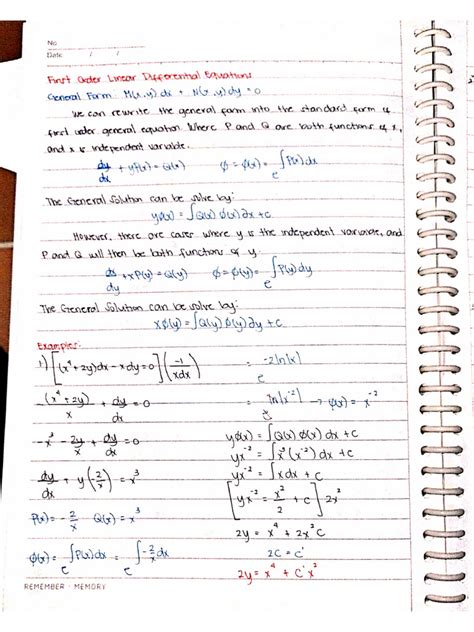 No
Date / /
First Order Linear Differential Equations
General Form: M(x,y)dx + N(x,y)dy = 0
We can rewrite the general form into the standard form of
first order general equation. Where P and Q are both functions of x,
and x is independent variable.
dy/dx + yP(x) = Q(x)    ϕ = ϕ(x) = e^∫P(x)dx
The General Solution can be solve by:
yϕ(x) = ∫Q(x) ϕ(x) ∂x + c
However, there are cases where y is the independent variable, and
P and Q will then be both functions of y.
dx/dy + xP(y) = Q(y)    ϕ = ϕ(y) = e^∫P(y)dy
The General Solution can be solve by:
xϕ(y) = ∫Q(y) ϕ(y) ∂y + c
Examples:
1) [(x⁴ + 2y)dx - xdy = 0](-1/xdx)
-(x⁴ + 2y)/x + dy/dx = 0
-x³ - 2y/x + dy/dx = 0
dy/dx + y(-2/x) = x³
P(x) = -2/x    Q(x) = x³
ϕ(x) = e^∫P(x)dx = e^∫-2/x dx
= e^-2ln|x|
= e^ln|x⁻²| → ϕ(x) = x⁻²
yϕ(x) = ∫Q(x) ϕ(x) dx + c
yx⁻² = ∫x³(x⁻²) dx + c
yx⁻² = ∫xdx + c
[yx⁻² = x²/2 + c] 2x²
2y = x⁴ + 2x²c
2c = c'
2y = x⁴ + c'x²
REMEMBER - MEMORY